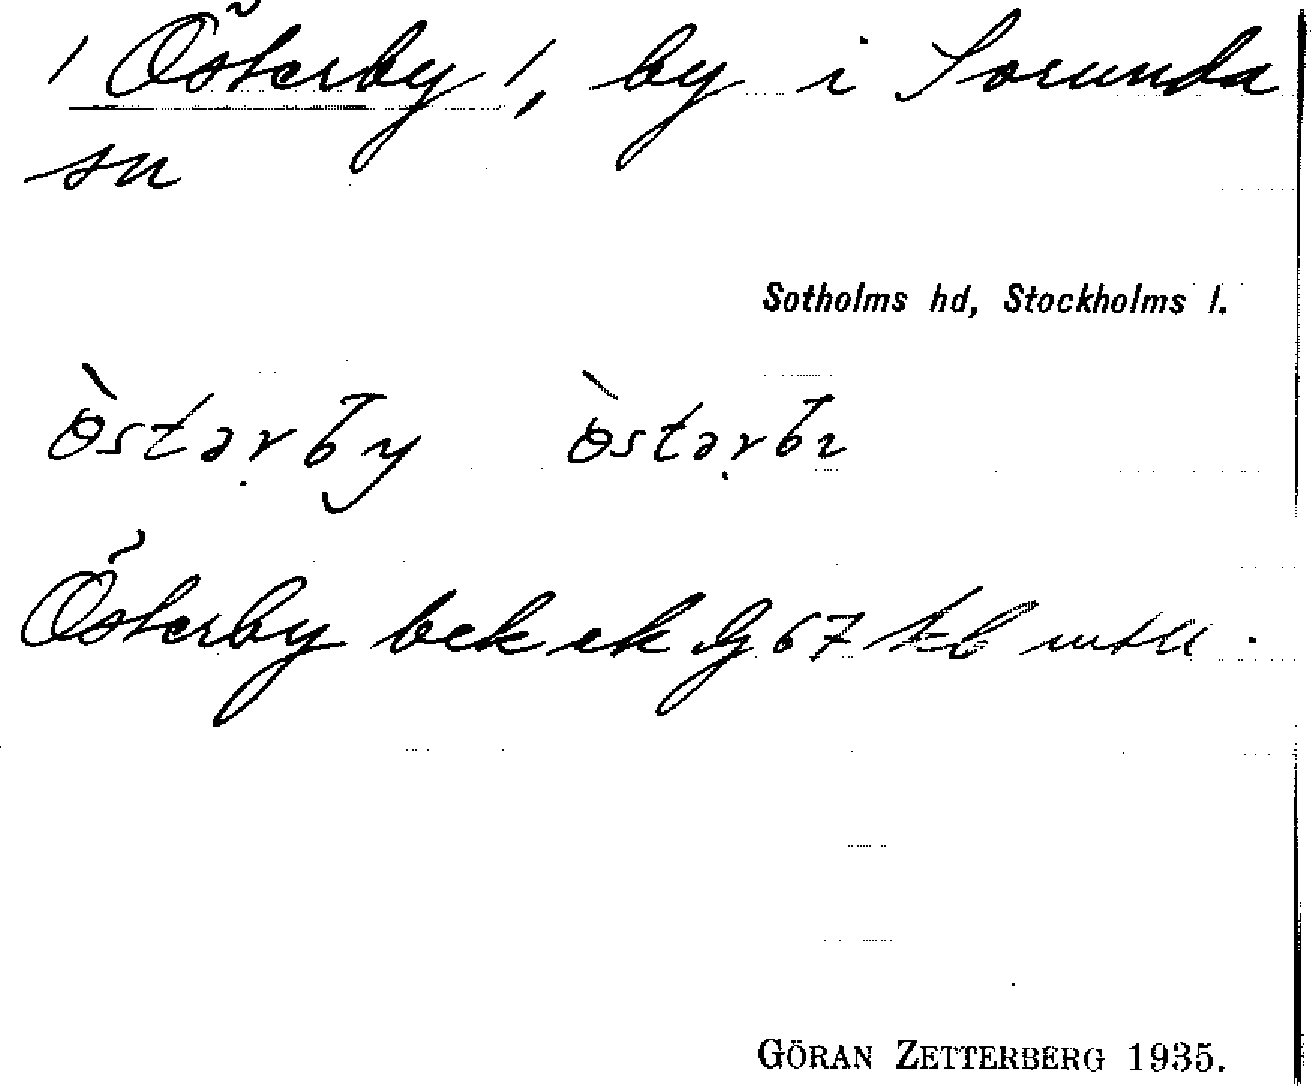 / Österby /, by i Sorunda
sn
Sotholms hd, Stockholms l.
ɵ̀stərby ɵ̀stərbɩ
Österby bek ek G 67
GÖRAN ZETTERBERG 1935.